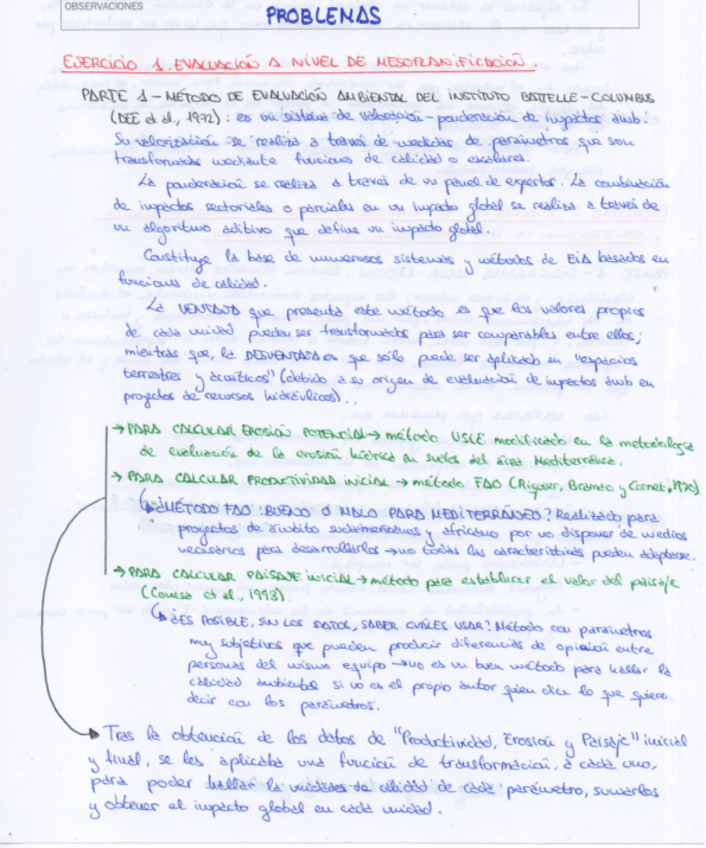 OBSERVACIONES
PROBLEMAS
EJERCICIO 1. EVALUACIÓN A NIVEL DE MESOPLANIFICACIÓN.
PARTE 1 - MÉTODO DE EVALUACIÓN AMBIENTAL DEL INSTITUTO BATTELLE-COLUMBUS
(DEE et al, 1972): es un sistema de valoración-ponderación de impactos amb.
Su valorización se realiza a través de medidas de parámetros que son
transformados mediante funciones de calidad o escalares.
La ponderación se realiza a través de un panel de expertos. La combinación
de impactos sectoriales o parciales en un impacto global se realiza a través de
un algoritmo aditivo que define un impacto global.
Constituye la base de numerosos sistemas y métodos de EIA basados en
funciones de calidad.
La VENTAJA que presenta este método es que los valores propios
de cada unidad pueden ser transformados para ser comparables entre ellos;
mientras que, la DESVENTAJA es que sólo puede ser aplicado en "espacios
terrestres y acuáticos" (debido a su origen de evaluación de impactos amb en
proyectos de recursos hidráulicos)..
→ PARA CALCULAR EROSIÓN POTENCIAL → método USLE modificado en la metodología
de evaluación de la erosión hídrica en suelos del área Mediterránea.
→ PARA CALCULAR PRODUCTIVIDAD INICIAL → método FAO (Riquier, Bramao y Cornet, 1970)
¿MÉTODO FAO: BUENO O MALO PARA MEDITERRÁNEO? Realizado para
proyectos de ámbito sudamericano y africano por no disponer de medios
necesarios para desarrollarlos → no todas las características pueden adaptarse.
→ PARA CALCULAR PAISAJE INICIAL → método para establecer el valor del paisaje
(Conesa et al., 1993).
¿ES POSIBLE, SIN LOS DATOS, SABER CUÁLES USAR? Método con parámetros
muy subjetivos que pueden producir diferencias de opinión entre
personas del mismo equipo → no es un buen método para hallar la
calidad ambiental si no es el propio autor quien dice lo que quiere
decir con los parámetros.
Tras la obtención de los datos de "Productividad, Erosión y Paisaje" inicial
y final, se les aplicaba una función de transformación, a cada uno,
para poder hallar la unidades de calidad de cada parámetro, sumarlos
y obtener el impacto global en cada unidad.